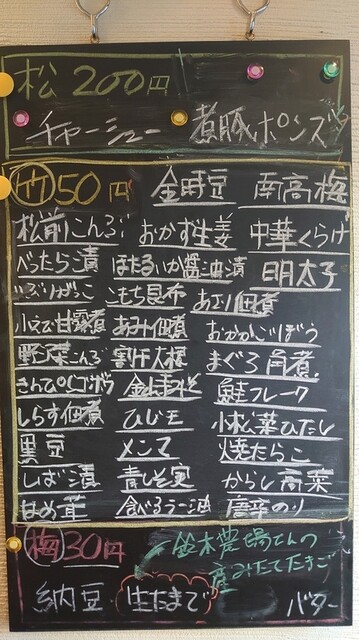 松 200円
チャーシュー 煮豚ポンズ
竹 50円 金時豆 南高梅
松前こんぶ おかず生姜 中華くらげ
べったら漬 ほたるいか醤油漬 明太子
いぶりがっこ こもち昆布 あさり佃煮
甘露煮 あみ佃煮 おかかごぼう
野菜こんぶ 割干大根 まぐろ角煮
きんぴらゴボウ 鮭フレーク
しらす佃煮 ひじキ 小松菜ひたし
黒豆 メンマ 焼たらこ
しば漬 青しそ実 からし高菜
なめ茸 食べるラー油 唐辛のり
梅 30円 鈴木農場さんの
産みたてたまご
納豆 生たまご バター